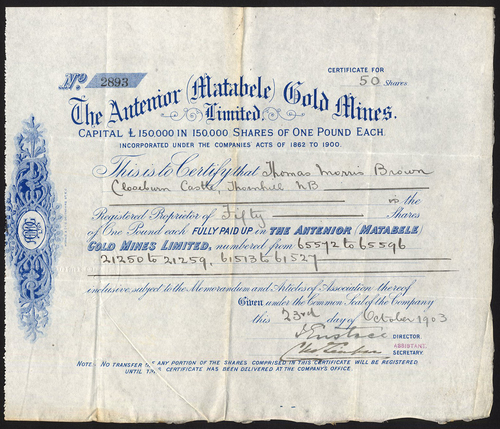 No 2893
CERTIFICATE FOR
50 Shares
The Antenior (Matabele) Gold Mines.
Limited.
CAPITAL £150,000 IN 150,000 SHARES OF ONE POUND EACH.
INCORPORATED UNDER THE COMPANIES ACTS OF 1862 TO 1900.
This is to Certify that Thomas Morris Brown
Closeburn Castle, Thornhill NB
is the
Registered Proprietor of Fifty Shares
of One Pound each FULLY PAID UP in THE ANTENIOR (MATABELE)
GOLD MINES LIMITED, numbered from 65572 to 65596
21250 to 21259, 61513 to 61527
inclusive subject to the Memorandum and Articles of Association thereof
Given under the Common Seal of the Company
this 23rd day of October 1903
DIRECTOR
ASSISTANT
SECRETARY.
NOTE: NO TRANSFER OF ANY PORTION OF THE SHARES COMPRISED IN THIS CERTIFICATE WILL BE REGISTERED
UNTIL THIS CERTIFICATE HAS BEEN DELIVERED AT THE COMPANY'S OFFICE.